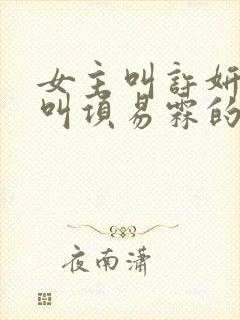 女主叫许妍
叫项易霖的
夜南潇